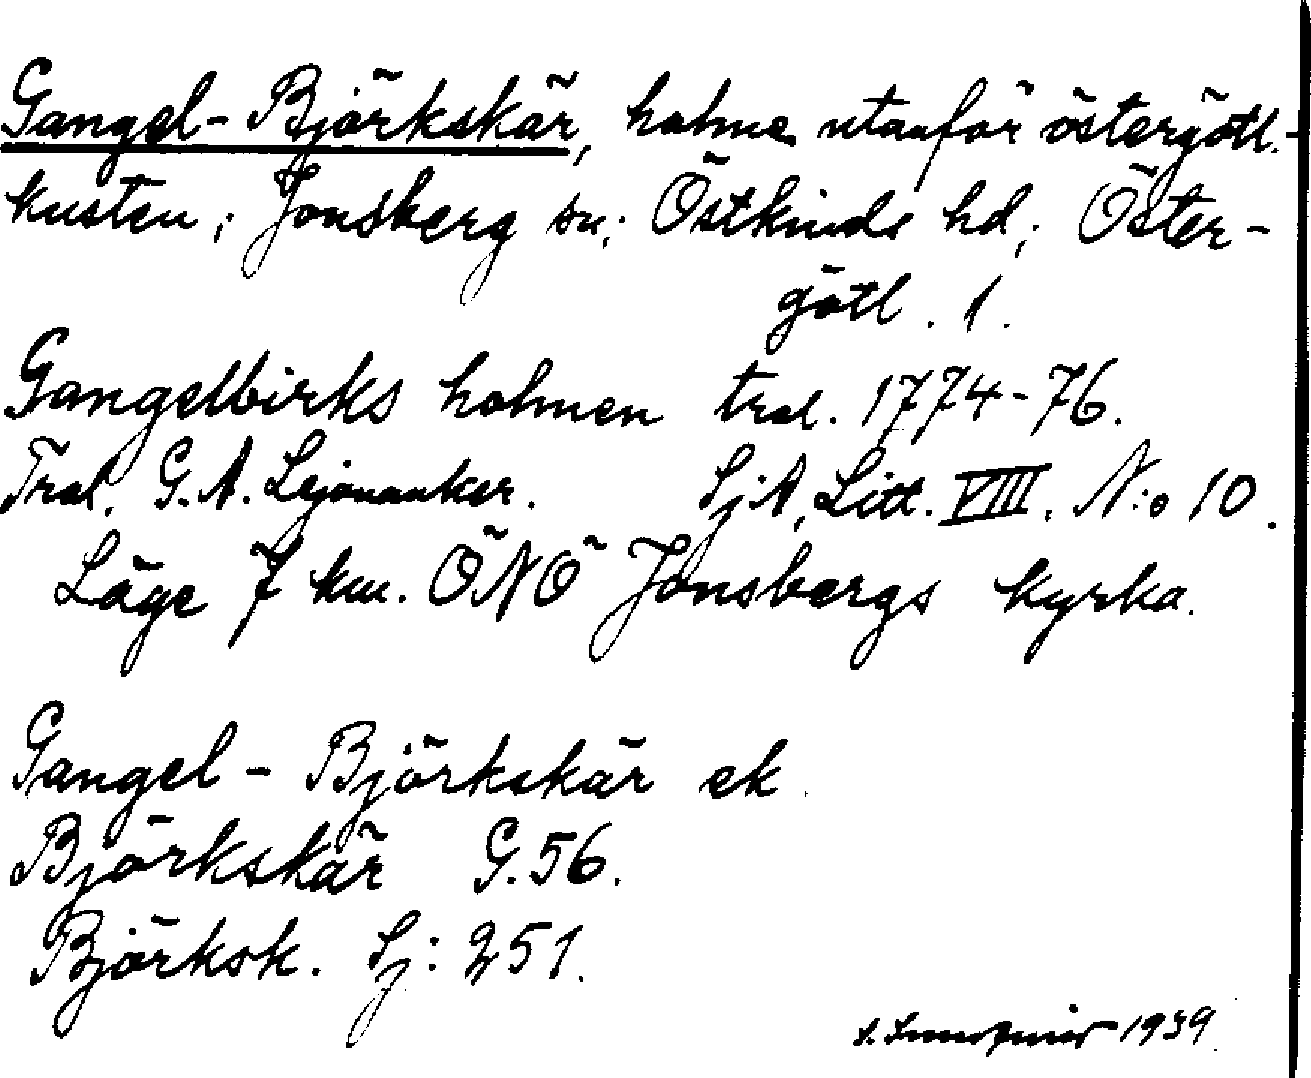 Gangel-Björkskär, holme utanför östergötl.-
kusten; Jonsberg sn; Östkinds hd; Öster-
götl. l.
Gangelbirks holmen tral. 1774-76.
Tral. G. A. Lejonanker. Sj:A, Litt. VIII. N:o 10.
Läge 7 km. ÖNÖ Jonsbergs kyrka.
Gangel-Björkskär ek.
Björkskär G. 56.
Björksk. Sj: 251.
1939